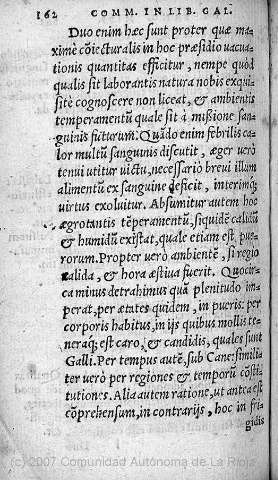 162 COMM. IN LIB. GAL.
Duo enim hæc sunt proter quæ ma
ximè cõiecturalis in hoc præsidio uacua
tionis quantitas efficitur, nempe quòd
qualis sit laborantis natura nobis exqui
sitè cognoscere non liceat, & ambientis
temperamentũ quale sit à missione san
guinis futurum. Quãdo enim febrilis ca
lor multũ sanguinis discutit, æger verò
tenui utitur uictu, necessariò breui illum
alimentũ ex sanguine deficit, interimq;
uirtus exoluitur. Absumitur autem hoc
ægrotantis tẽperamentũ, siquidẽ calidũ
& humidũ existat, quale etiam est pue
rorum. Propter verò ambientẽ, si regio
calida, & hora æstiua fuerit. Quocir
ca minus detrahimus quã plenitudo im
perat, per ætates quidem, in pueris: per
corporis habitus, in ijs quibus mollis te
neraq; est caro, & candidis, quales sunt
Galli. Per tempus autẽ, sub Cane: similia
ter uerò per regiones & temporũ cõsti
tutiones. Alia autem ratione, ut antea est
cõprehensum, in contrarijs, hoc in fri
gidis
(c) 2007 Comunidad Autónoma de La Rioja